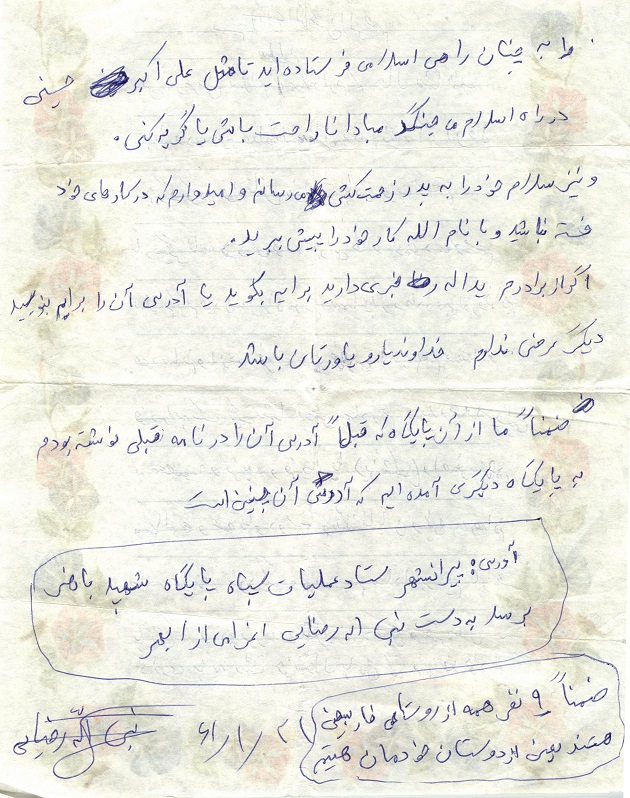 و ا به چنان راهی اسلامی فرستاده اید تا مثل علی اکبر حسینی
در راه اسلام می جنگد مبادا ناراحت باشی یا گریه کنی.
و نیز سلام خود را به پدر زحمت کش می رسانم و امیدوارم که در کارهای خود
خسته نباشد و با نام الله کار خود را پیش ببرید.
اگر از برادرم یداله خبری دارید برایم بگوید یا آدرس آن را برایم بنویسید
دیگر عرضی ندارم خداوند یار و یاورتان باشد
ضمناً ما از آن پایگاه که قبلاً آدرس آن را در نامه قبلی نوشته بودم
به پایگاه دیگری آمده ایم که آدرس آن چنین است
آدرس: پیرانشهر ستاد عملیات سپاه پایگاه شهید
برسد به دست نبی اله رضایی اعزامی از ابهر
ضمناً ۹ نفر همه از روستای
هستند یعنی از دوستان خودمان هستیم
۶۱/۱/۲۱
نبی اله رضایی